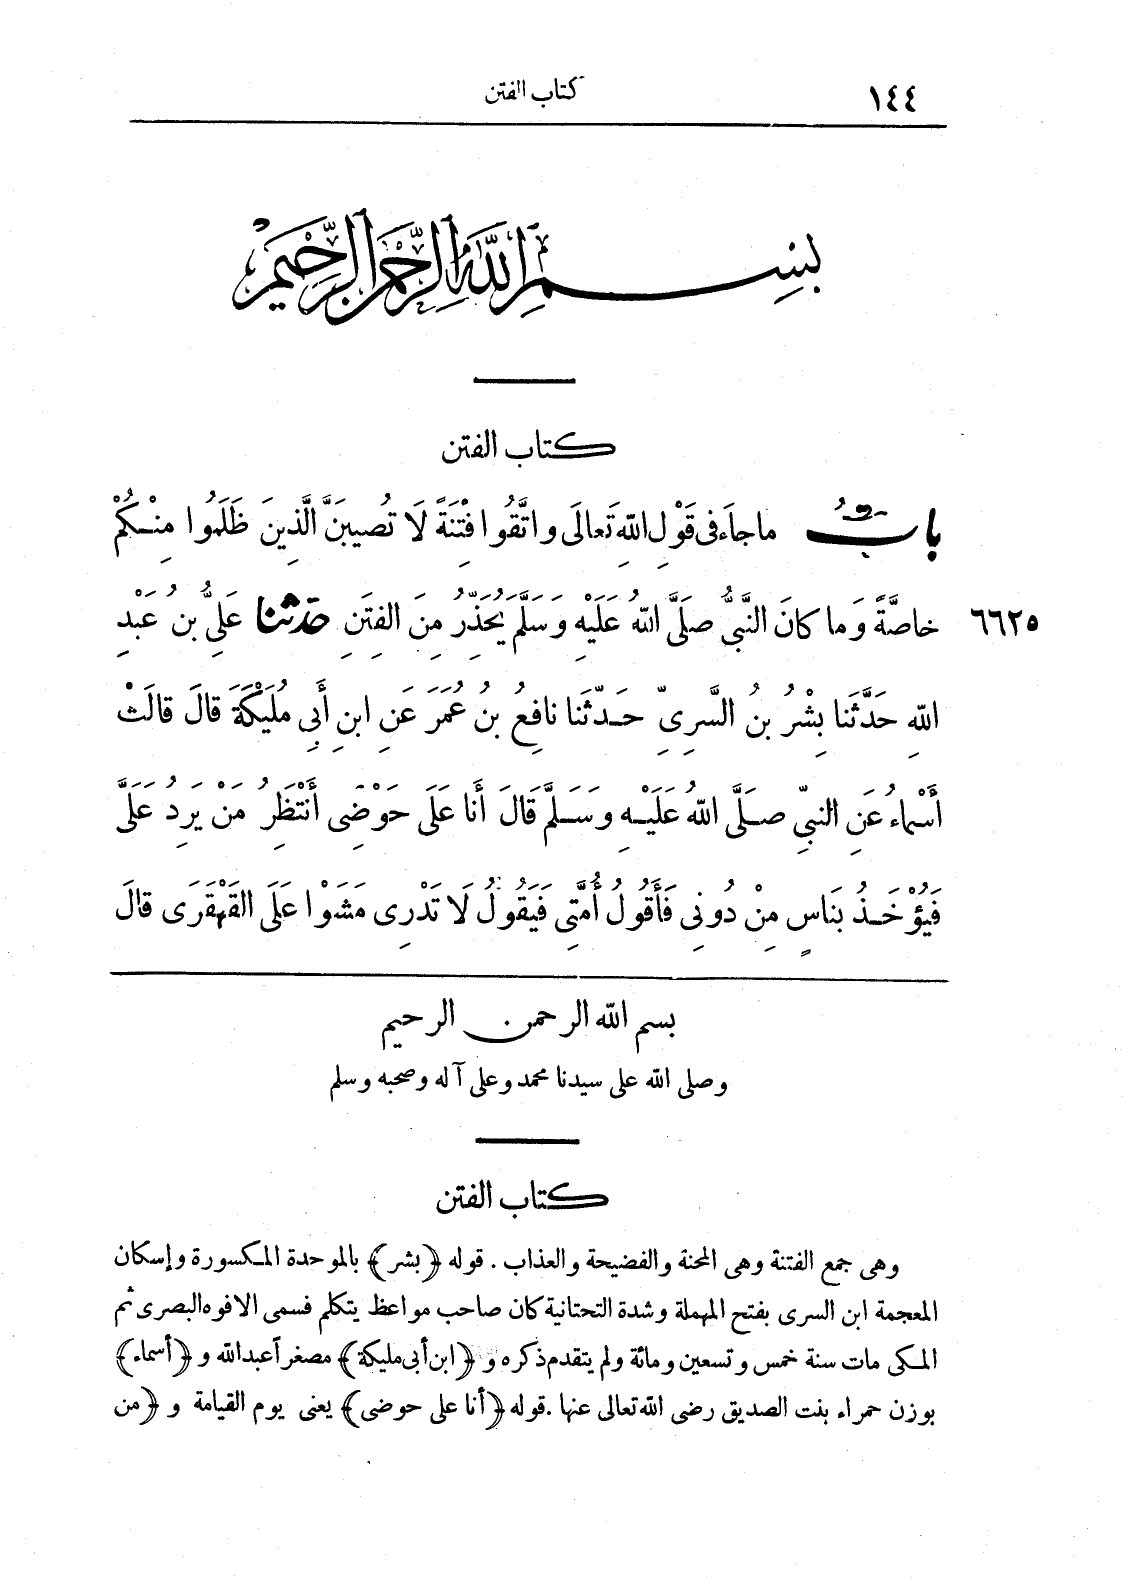 ١٤٤ كتاب الفتن
بِسْمِ اللهِ الرَّحْمَنِ الرَّحِيمِ
كتاب الفتن
بَابُ ماجاءَ فى قَوْلِ اللهِ تَعالَى واتَّقُوا فِتْنَةً لَا تُصيبَنَّ الَّذِينَ ظَلَمُوا مِنْكُمْ
٦٦٢٥ خاصَّةً وَما كانَ النَّبِىُّ صلَّى اللهُ عَلَيْهِ وَسَلَّم يُحَذِّرُ مِنَ الفِتَنِ حَدَّثَنا عَلِىُّ بنُ عَبْدِ
اللهِ حَدَّثَنا بِشْرُ بنُ السَّرِىِّ حَدَّثَنا نافِعُ بنُ عُمَرَ عَنِ ابنِ أَبِى مُلَيْكَةَ قالَ قالَتْ
أَسْماءُ عَنِ النبىِّ صلَّى اللهُ عَلَيْهِ وَسَلَّمَ قَالَ أَنا عَلَى حَوْضِى أَنْتَظِرُ مَنْ يَرِدُ عَلَىَّ
فَيُؤْخَذُ بنَاسٍ مِنْ دُونِى فَأَقُولُ أُمَّتِى فَيَقُولُ لَا تَدْرِى مَشَوْا عَلَى القَهْقَرَى قالَ
بسم الله الرحمن الرحيم
وصلى الله على سيدنا محمد وعلى آله وصحبه وسلم
كتاب الفتن
وهى جمع الفتنة وهى المحنة والفضيحة والعذاب. قوله ﴿بشر﴾ بالموحدة المكسورة وإسكان
المعجمة ابن السرى بفتح المهملة وشدة التحتانية كان صاحب مواعظ يتكلم فسمى الافوه البصرى ثم
المكى مات سنة خمس وتسعين ومائة ولم يتقدم ذكره و ﴿ابن أبى مليكة﴾ مصغرا عبد الله و ﴿أسماء﴾
بوزن حمراء بنت الصديق رضى الله تعالى عنها. قوله ﴿أنا على حوضى﴾ يعنى يوم القيامة و ﴿من